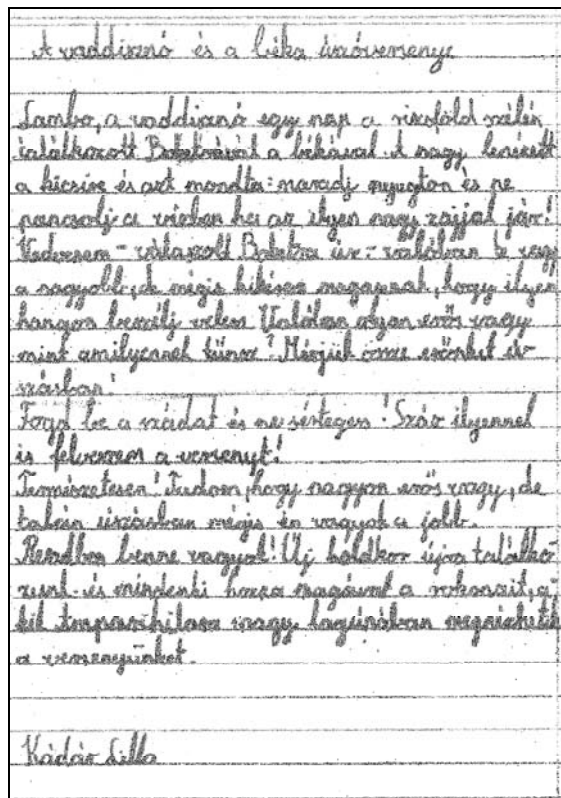 A vaddisznó és a béka úszóversenye
Sambo, a vaddisznó egy nap a rizsföld szélén
találkozott Baketrával a békával. A nagy lenézett
a kicsire és azt mondta: maradj nyugton és ne
pancsolj a vízben ha az ilyen nagy zajjal jár!
- válaszolt úr - valóban te vagy
a nagyobb, de mégis kikérem magamnak, hogy ilyen
hangon beszélj velem. Valóban olyan erős vagy
mint amilyennek tűnsz? Mérjük össze erőnket ú-
szásban!
Fogd be a szádat és ne sértegess! Száz ilyennel
is felveszem a versenyt!
Természetesen! Tudom, hogy nagyon erős vagy, de
talán úszásban mégis én vagyok a jobb.
Rendben benne vagyok! Új holdkor újra találko-
zunk és mindenki hozza magával a rokonait, a-
kik vagy lagúnában megnézhetik
a versenyünket.
Kádár Lilla